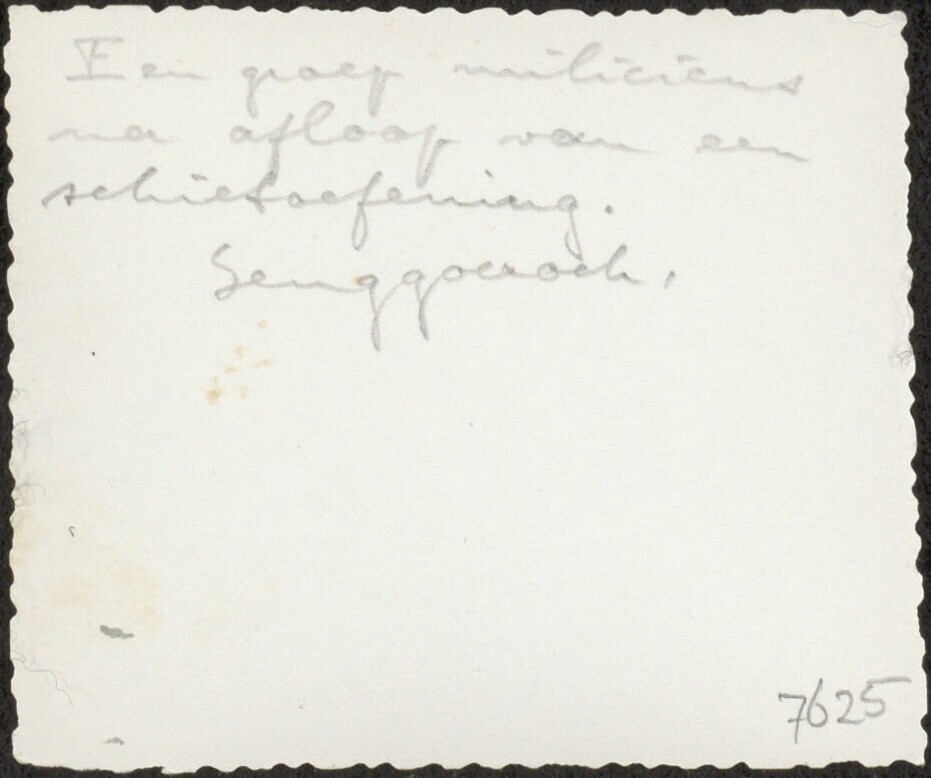 Een groep miliciens
na afloop van een
schietoefening.
Senggoeroeh.
7625